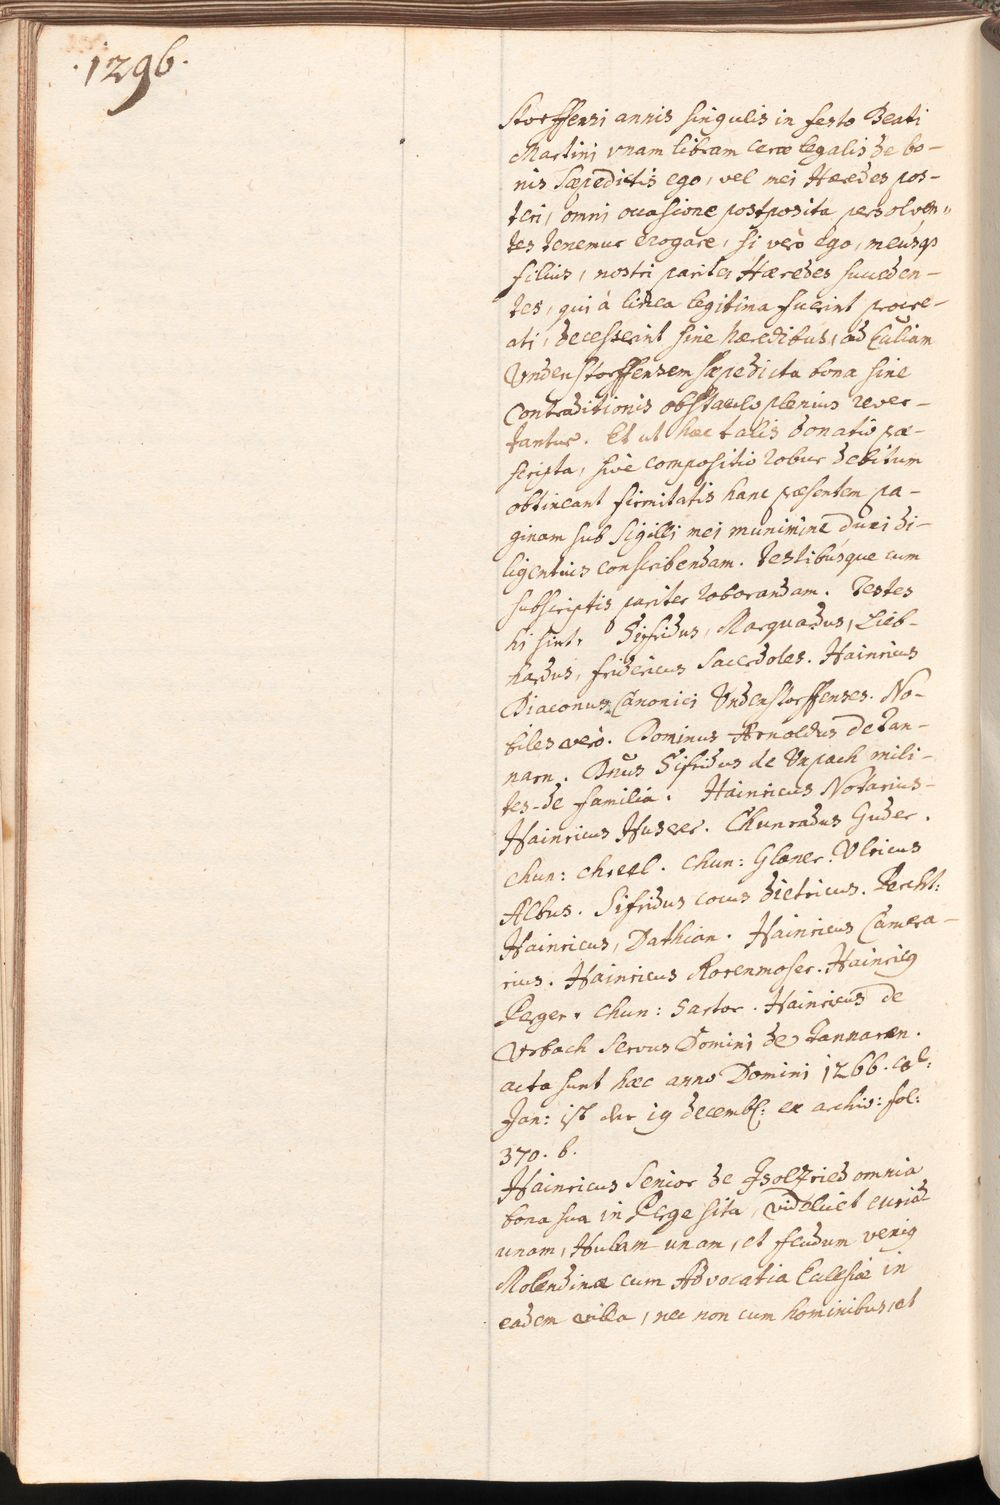 ·1296·
storffensi annis singulis in festo Beati
Martini vnam libram ceræ legalis de bo-
nis sæpedictis ego, vel mei Hæredes pos-
teri, omni occasione postposita persolven„
tes tenemur erogare, si verò ego, meusq3
filius, nostri pariter Hæredes succeden-
tes, qui à linea legitima fuerint procre-
ati, decesserint sine hæredibus, ad Eccliam
Vndenstorffensem sæpedicta bona sine
Contraditionis obstaculo plenius rever-
tantur. Et ut hæc talis donatio præ-
scripta, sive compositio robur debitum
obtineant firmitatis hanc præsentem pa-
ginam sub Sigilli mei munimine duxi di-
ligentius conscribendam. testibusque cum
subscriptis pariter roborandam. Testes
hi sint, Sifridus, Marquadus, Lieb-
hardus, fridericus Sacerdotes. Hainricus
Diaconus Canonici Vndenstorffenses. No-
biles verò. Dominus Arnoldus de Tan-
narn. Dnus Sifridus de Vnpach mili-
tes de familia. Hainricus Notarius-
Hainricus Husner. Chunradus Guder.
Chun: Chreel. Chun: Glaner. Vlricus
Albus. Sifridus cocus dietricus. Percht:
Hainricus, Dathian. Hainricus Camera-
rius. Hainricus Rorenmoser. Hainricg
Perger. Chun: Sartor. Hainricus de
Vrbach Servus Domini de Tannaren.
acta sunt hæc anno Domini 1266. cal:
Jan: ist der 19 decembr: ex archiv: fol:
370. b.
Hainricus Senior de Jsoltzried omnia
bona sua in Perge sita, videlicet curiã
unam, Hubam unam, et feudum venig
Molendinæ cum Advocatia Ecclesiæ in
eadem villa, nec non cum hominibus, et